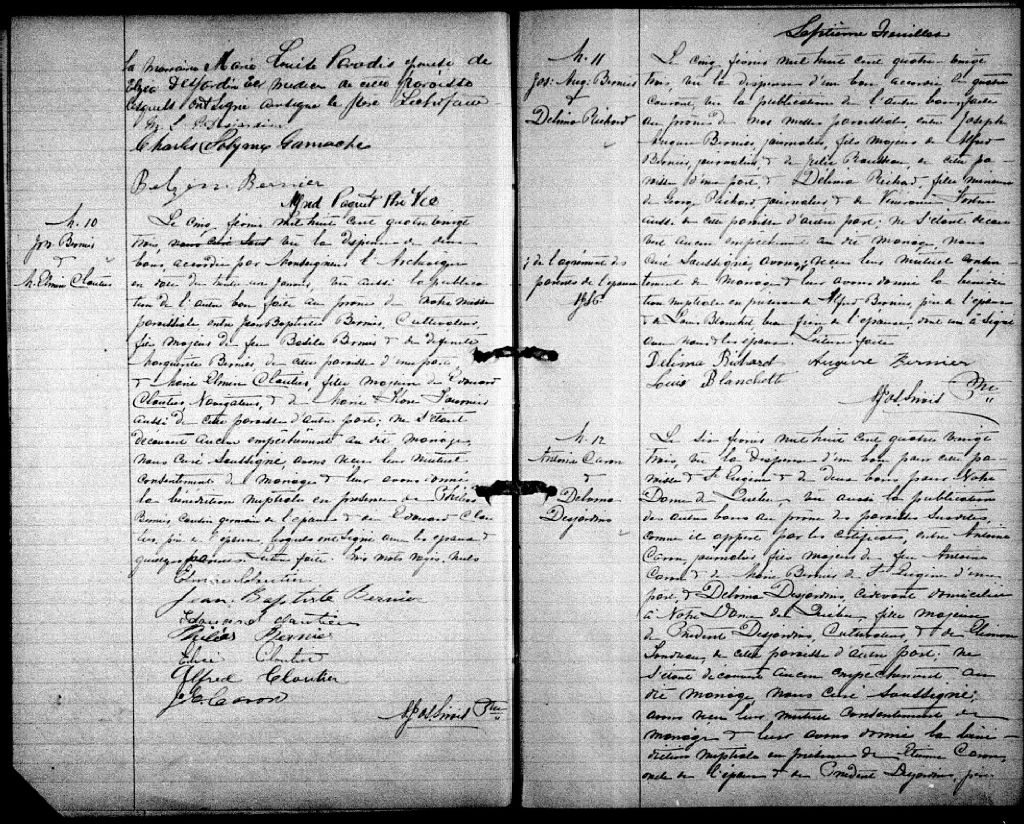 la marraine Marie Louise Paradis épouse de
Elzée Desjardins médecin de cette paroisse
lesquels ont signé ainsi que le père Lecture faite
M. L. Desjardins
Charles Polynix Gamache
Belzem. Bernier
Alfred Paquet Ptre Vic
M. 10
Jos. Bernier
&
M. Elmire Cloutier
Le cinq février mil huit cent quatre vingt
trois, vu la dispense de deux
bans, accordée par Monseigneur l'Archevêque
en date du trente un Janvier, vu aussi la publica-
tion de l'autre ban faite au prône de Notre Messe
paroissiale entre Jean Baptiste Bernier, Cultivateur,
fils majeur de feu Basile Bernier & de défunte
Marguerite Bernier de cette paroisse d'une part,
& Marie Elmire Cloutier, fille majeure de Edouard
Cloutier Navigateur, & de Marie Flore Fournier
aussi de cette paroisse d'autre part; ne s'étant
découvert aucun empêchement au dit mariage,
nous curé soussigné, avons reçu leur mutuel
consentement de mariage & leur avons donné
la bénédiction nuptiale en présence de Philias
Bernier, Cousin germain de l'époux & de Edouard Clou-
tier, père de l'épouse, lesquels ont signé avec les époux &
quelques parents. Lecture faite. Trois mots rayés, nuls
Elmire Cloutier
Jean Baptiste Bernier
Edouard Cloutier
Philias Bernier
Elise Cloutier
Alfred Cloutier
J. C. Caron
Ptre
Septième Feuillet
M. 11
Jos: Aug. Bernier
&
Delima Richard
Le cinq février mil huit cent quatre vingt
trois, vu la dispense d'un ban accordée le quatre
courant, vu la publication de l'autre ban faite
au prône de nos messes paroissiales, entre Joseph
Auguste Bernier, journalier, fils majeur de Alfred
Bernier, journalier, & de Julie Rousseau, de cette pa-
roisse d'une part, & Délima Richard, fille mineure
de George Richard, journalier & de
aussi de cette paroisse d'autre part; ne s'étant décou-
vert aucun empêchement au dit mariage, nous
curé soussigné, avons, reçu leur mutuel consen-
tement de mariage & leur avons donné la bénédic-
tion nuptiale en présence de Alfred Bernier, père de l'époux
& de Louis Blanchet beau frère de l'épouse, dont un a signé
avec nous & les époux. Lecture faite
; de l'agrément des
parents de l'épouse
Delima Richard Auguste Bernier
Louis Blanchette
Ptre
M. 12
Antoine Caron
&
Deloma
Desjardins
Le six février mil huit cent quatre vingt
trois, vu la dispense d'un ban pour cette pa-
roisse & St Eugène & de deux bans pour Notre
Dame de Québec, vu aussi la publication
des autres bans au prône des paroisses susdites,
comme il appert par les certificats, entre Antoine
Caron, journalier, fils majeur de feu Antoine
Caron & de Marie Bernier de St Eugène d'une
part, & Deloma Desjardins, ci-devant domiciliée
à Notre Dame de Québec, fille majeure
de Prudent Desjardins, Cultivateur, & de
de cette paroisse d'autre part; ne
s'étant découvert aucun empêchement au
dit mariage, nous curé soussigné,
avons reçu leur mutuel consentement de
mariage & leur avons donné la béné-
diction nuptiale en présence de Etienne Caron,
oncle de l'époux & de Prudent Desjardins, père